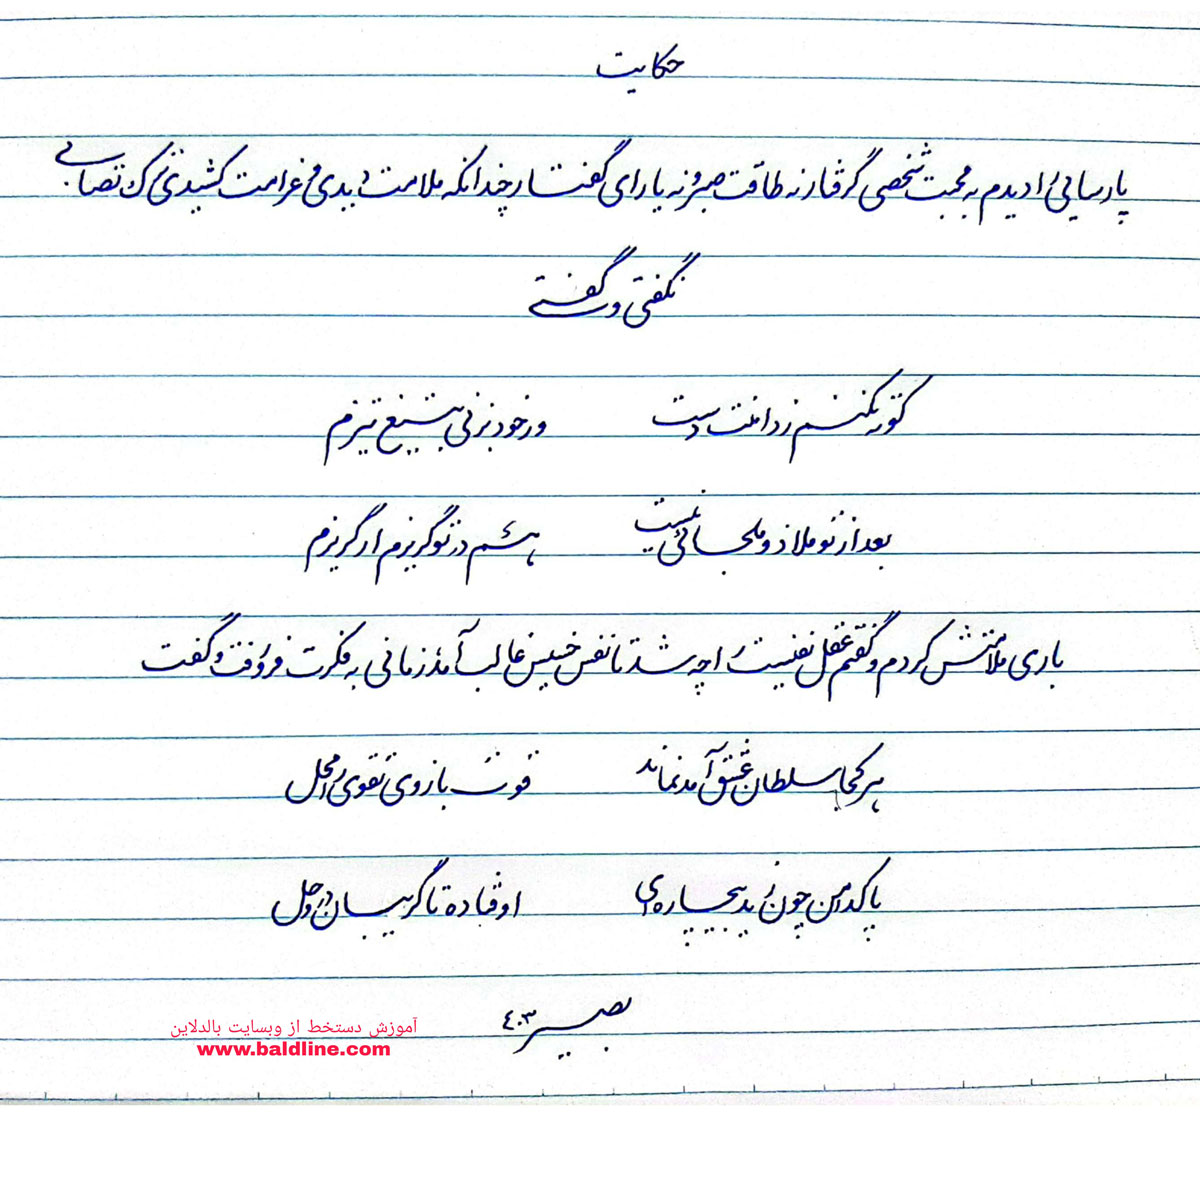 حکایت
پارسایی را دیدم به محبت شخصی گرفتار نه طاقت صبر و نه یارای گفتار چندانکه ملامت دیدی و غرامت کشیدی ترک تصابی
نگفتی و گفتی
کوته نکنم ز دامنت دست ور خود بزنی به تیغ تیزم
بعد از تو ملاذ و ملجائی نیست هم در تو گریزم ار گریزم
باری ملامتش کردم و گفتم عقل نفیست را چه شد تا نفس خسیس غالب آمد زمانی به فکرت فرو رفت و گفت
هر کجا سلطان عشق آمد نماند قوت بازوی تقوی را محل
پاکدامن چون زید بیچاره‌ای اوفتاده تا گریبان در وحل
بصیر ۴۰۳
آموزش دستخط از وبسایت بالدلاین
www.baldline.com